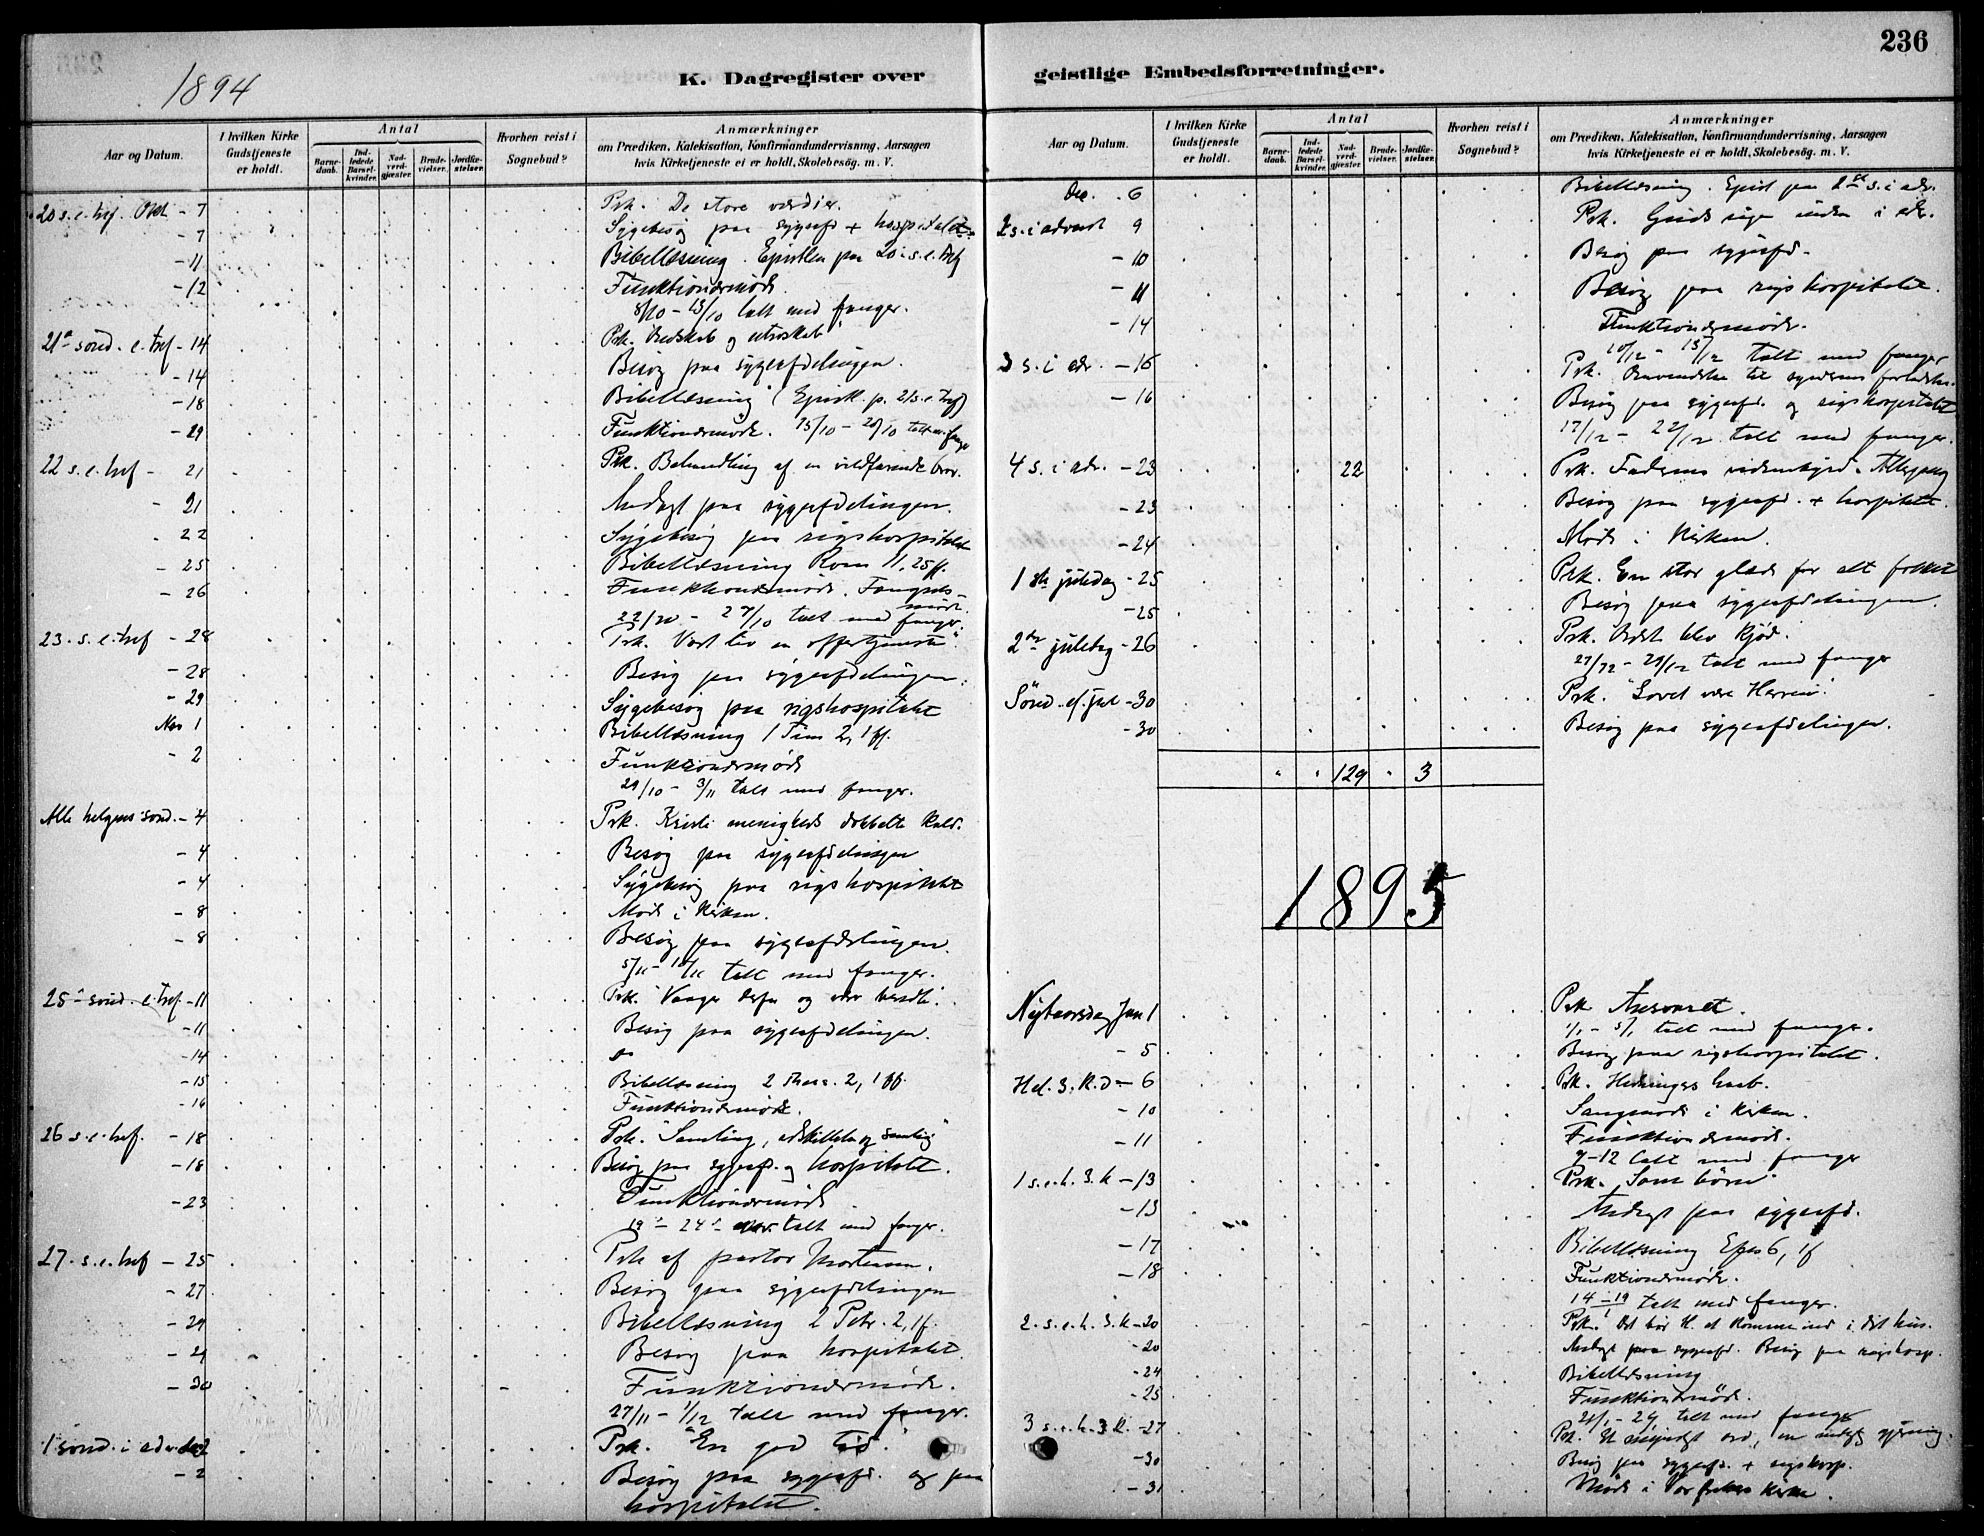 236
1894
K. Dagregister over
geistlige Embedsforretninger.
Aar og Datum.
I hvilken Kirke Gudstjeneste er holdt.
Antal
Barnedaab.
Indledede Barselkvinder.
Nadverdgjæster.
Brudevielser.
Jordfæstelser.
Hvorhen reist i Sognebud?
Anmærkninger
om Prædiken, Katekisation, Konfirmandundervisning, Aarsagen
hvis Kirketjeneste ei er holdt, Skolebesög. m. V.
20 s. e. tref. Okt - 7 Prk. De store værdier.
- 7 Sygebesøg paa sygeafd + hospitalet.
- 11 Bibellæsning. Epistlen paa 20 s. e. tref
- 12 Funktionærmøde.
8/10 - 13/10 talt med fanger.
21de sønd. e. tref - 14 Prk. Troskab og utroskab
- 14 Besøg paa sygeafdelingen.
- 18 Bibellæsning (Epistl. p. 21 s. e. tref)
- 29 Funktionærmøde. 15/10 - 20/10 talt m. fanger
22 s. e. tref - 21 Prk. Behandling af en vildfarende bror.
- 21 Andagt paa sygeafdelingen.
- 22 Sygebesøg paa rigshospitalet
- 25 Bibellæsning Rom 11, 25 ff.
- 26 Funktionærmøde. Fængselsmøde.
22/10 - 27/10 talt med fanger.
23. s. e. tref - 28 Prk. Vort liv en offertjeneste.
- 28 Besøg paa sygeafdelingen.
- 29 Sygebesøg paa rigshospitalet
Nov 1 Bibellæsning 1 Tim 2, 1 ff.
- 2 Funktionærmøde
29/10 - 3/11 talt med fanger.
Alle helgens sønd. - 4 Prk. Kristi menigheds dobbelte kald.
- 4 Besøg paa sygeafdelingen
- 4 Sygebesøg paa rigshospitalet
- 8 Møde i Kirken.
- 8 Besøg paa sygeafdelingen.
5/11 - 10/11 talt med fanger.
25de sønd. e. tref - 11 Prk. "Vaager derfor og vær beredte".
- 11 Besøg paa sygeafdelingen.
- 14
- 15 Bibellæsning 2 Thess. 2, 1 ff.
- 16 Funktionærmøde.
26 s. e. tref. - 18 Prk. "Samling, adskillelse og samling"
- 18 Besøg paa sygeafd. og hospitalet.
- 23 Funktionærmøde
19 - 24 nov. talt med fanger.
27. s. e. tref - 25 Prk af pastor Mortensen.
- 27 Besøg paa sygeafdelingen
- 29 Bibellæsning 2 Petr. 2, 1 f.
- 29 Besøg paa hospitalet.
- 30 Funktionærmøde.
27/11 - 1/12 talt med fanger.
1 sønd. i adv. dec 2 Prk. "En god tid."
- 2 Besøg paa sygeafd. og paa
hospitalet.
Aar og Datum.
I hvilken Kirke Gudstjeneste er holdt.
Antal
Barnedaab.
Indledede Barselkvinder.
Nadverdgjæster.
Brudevielser.
Jordfæstelser.
Hvorhen reist i Sognebud?
Anmærkninger
om Prædiken, Katekisation, Konfirmandundervisning, Aarsagen
hvis Kirketjeneste ei er holdt, Skolebesög. m. V.
Dec. 6 Bibellæsning. Epist paa 2den s. i adv.
2 s. i advent 9 Prk. Guds rige inden i eder.
- 10 Besøg paa sygeafd.
- 11 Besøg paa rigshospitalet.
- 14 Funktionærmøde.
10/12 - 15/12 talt med fanger
3 s. i adv. - 16 Prk. Omvendelse til syndernes forladelse.
- 16 Besøg paa sygeafd. og rigshospitalet
17/12 - 22/12 talt med fanger.
4 s. i adv. - 23 22 Prk. Altergang
- 23 Besøg paa sygeafd. + hospitalet.
- 24 Møde i Kirken.
1ste juledag - 25 Prk. En stor glæde for alt folket
- 25 Besøg paa sygeafdelingen.
2den juledag - 26 Prk. Ordet blev kjød.
27/12 - 29/12 talt med fanger
Sønd. ef. jul - 30 Prk. "Lovet være Herren".
- 30 Besøg paa sygeafdelingen.
" " 129 " 3
1895
Nytaarsdag Jan 1 Prk Ansvaret.
1/1 - 5/1 talt med fanger.
- 5 Besøg paa rigshospitalet.
Hel. 3. K. d - 6 Prk. Hedninges haab.
- 10 Sangmøde i Kirken.
- 11 Funktionærmøde.
7-12 talt med fanger
1 s. e. h. 3. K - 13 Prk. "Som børn"
- 13 Andagt paa sygeafd.
- 17 Bibellæsning Efes 6, 1 f
- 18 Funktionærmøde.
14 - 19 talt med fanger.
2. s. e. h. 3. K - 20 Prk. Det bør H. at komme ind i dit hus.
- 20 Andagt paa sygeafd. Besøg paa rigshosp.
- 24 Bibellæsning
- 25 Funktionærmøde.
21/1 - 26 talt med fanger
3 s. e. h. 3 K. - 27 Prk. Et mægtigt ord, en mægtig gjerning.
- 30 Besøg paa sygeafd. + rigshosp.
- 31 Møde i Vor frelsers kirke.